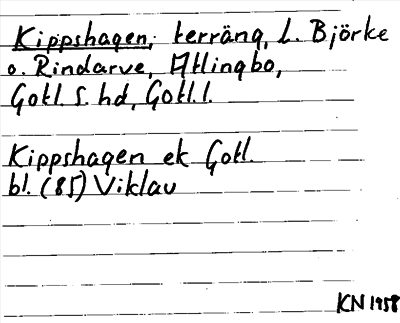 Kippshagen, terräng, L. Björke
o. Rindarve, Atlingbo,
Gotl. S. hd, Gotl. l.
Kippshagen ek Gotl.
bl. (85) Viklau
KN 1958